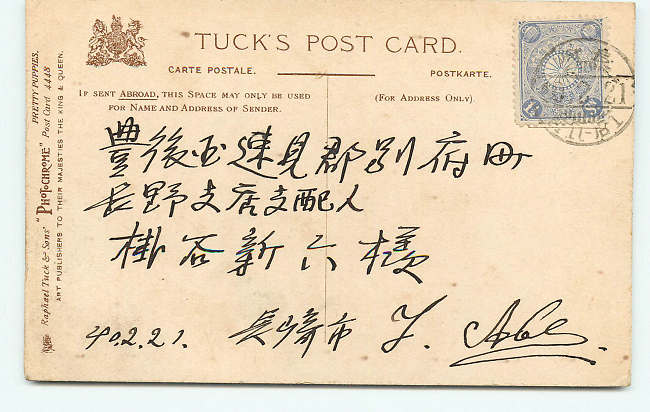 TUCK'S POST CARD.
CARTE POSTALE. POSTKARTE.
IF SENT ABROAD, THIS SPACE MAY ONLY BE USED
FOR NAME AND ADDRESS OF SENDER.
(FOR ADDRESS ONLY)
PRETTY PUPPIES.
Raphael Tuck & Sons' "PHOTOCHROME" Post Card 4448
ART PUBLISHERS TO THEIR MAJESTIES THE KING & QUEEN.
豊後国速見郡別府町
長野支店支配人
掛谷新六様
40.2.21. 長崎市 Y. Abe